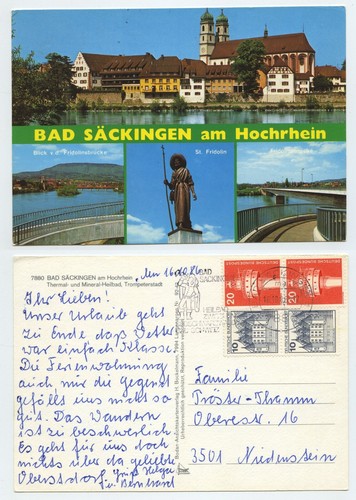 BAD SÄCKINGEN am Hochrhein
Blick v.d. Fridolinsbrücke
St. Fridolin
7880 BAD SÄCKINGEN am Hochrhein
Thermal- und Mineral-Heilbad, Trompeterstadt
Ihr Lieben!
Unser Urlaub geht
zu Ende das Wetter
war einfach Klasse.
Die Ferienwohnung
auch nur die Gegend
gefällt uns nicht so
gut. Das Wandern
ist zu beschwerlich.
Es geht für uns doch
nichts über da geliebte
Oberstdorf. Grüße Helga
u. Bernhard
BAD
SÄCKINGEN
DEUTSCHE BUNDESPOST
20
20
10
10
Familie
Tröster-Thamm
Oberestr. 16
3501 Niedenstein